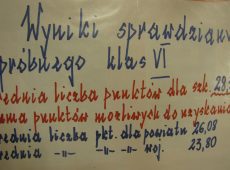 Wyniki sprawdzianu
próbnego klas VI
średnia liczba punktów dla szk.
suma punktów możliwych do uzyskania
średnia liczba pkt. dla powiatu 26,08
średnia -||- -||- -||- woj. 23,80